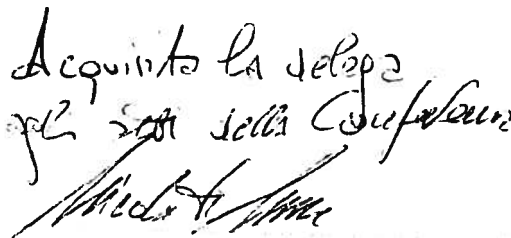 Acquisita la delega
agli atti della Conferenza